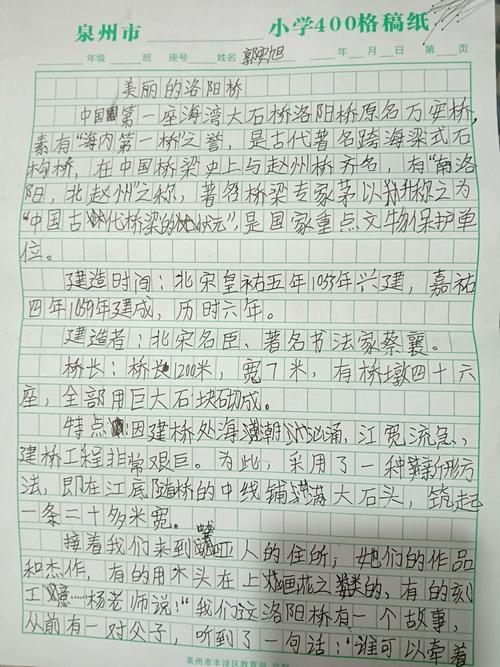 泉州市 小学400格稿纸
年级 班 座号 姓名 郭 旭 年 月 日 第 页
美丽的洛阳桥
中国第一座海湾大石桥洛阳桥原名万安桥,
素有“海内第一桥”之誉,是古代著名跨海梁式石
构桥,在中国桥梁史上与赵州桥齐名,有“南洛
阳,北赵州”之称,著名桥梁专家茅以升称之为
“中国古代桥梁的状元”,是国家重点文物保护单
位。
建造时间:北宋皇祐五年1053年兴建,嘉祐
四年1059年建成,历时六年。
建造者:北宋名臣、著名书法家蔡襄。
桥长:桥长1200米,宽7米,有桥墩四十六
座,全部用巨大石块砌成。
特点:因建桥处海潮汹涌,江宽流急,
建桥工程非常艰巨。为此,采用了一种 形方
法,即在江底随桥的中线铺满大石头,筑起
一条二十多米宽。
接着我们来到 亚人的住所;她们的作品
和杰作,有的用木头在上 画花之类的,有的刻
工 杨老师说:“我们这洛阳桥有一个故事,
从前有一对父子,听到了一句话:“谁可以牵着
泉州市丰泽区教育局